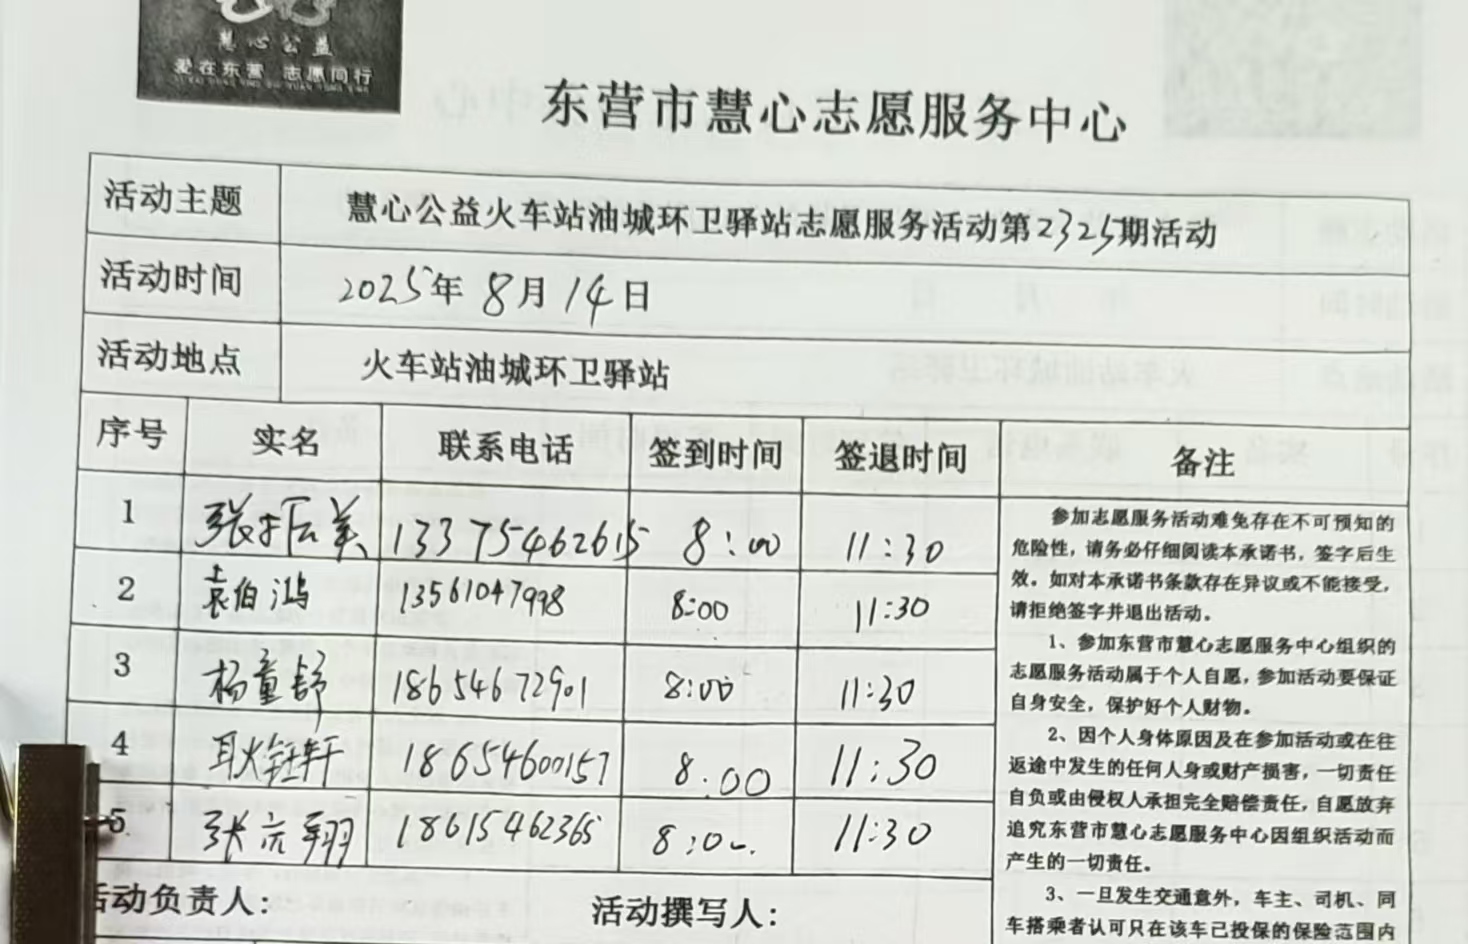 慧心公益
爱在东营 志愿同行
东营市慧心志愿服务中心
活动主题 慧心公益火车站油城环卫驿站志愿服务活动第2325期活动
活动时间 2025年8月14日
活动地点 火车站油城环卫驿站
序号 实名 联系电话 签到时间 签退时间 备注
1 张振美 13375462615 8:00 11:30
2 袁伯鸿 13561047998 8:00 11:30
3 杨童舒 18654672901 8:00 11:30
4 耿钰轩 18654600157 8:00 11:30
5 张亢翔 18615462365 8:00 11:30
参加志愿服务活动难免存在不可预知的
危险性，请务必仔细阅读本承诺书，签字后生
效。如对本承诺书条款存在异议或不能接受，
请拒绝签字并退出活动。
1、参加东营市慧心志愿服务中心组织的
志愿服务活动属于个人自愿，参加活动要保证
自身安全，保护好个人财物。
2、因个人身体原因及在参加活动或在往
返途中发生的任何人身或财产损害，一切责任
自负或由侵权人承担完全赔偿责任，自愿放弃
追究东营市慧心志愿服务中心因组织活动而
产生的一切责任。
3、一旦发生交通意外，车主、司机、同
车搭乘者认可只在该车已投保的保险范围内
活动负责人： 活动撰写人：